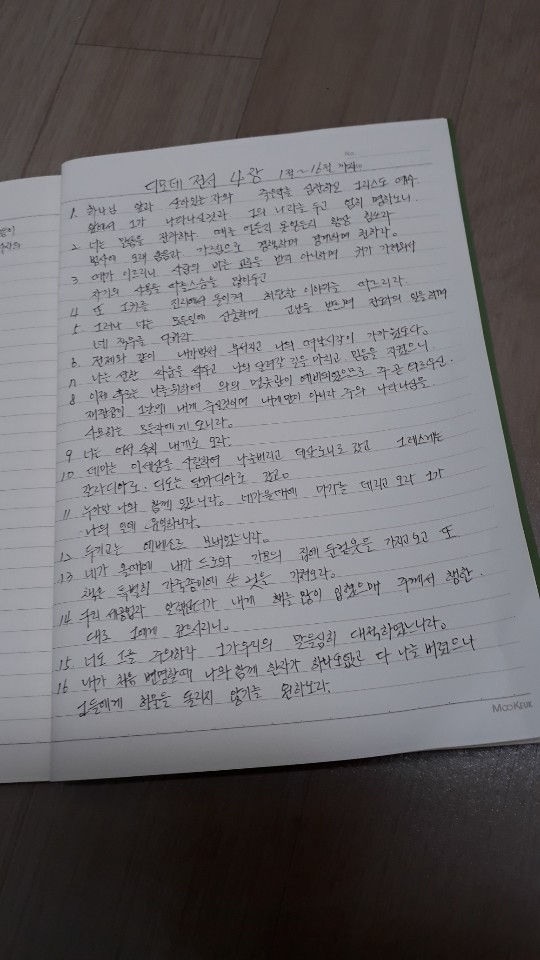 디모데 전서 4장 1절~16절 까지
No.
1. 하나님 앞과 살아있는 자와 죽은자를 심판하실 그리스도 예수
앞에서 그가 나타나실것과 그의 나라를 두고 엄히 명하노니.
2 너는 말씀을 전파하라 때를 얻든지 못얻든지 항상 힘쓰라
범사에 오래 참음과 가르침으로 경책하며 경계하며 권하라.
3 때가 이르리니 사람이 바른 교훈을 받지 아니하며 귀가 가려워서
자기의 사욕을 따를 스승을 많이두고
4 또 그 귀를 진리에서 돌이켜 허탄한 이야기를 따르리라.
5 그러나 너는 모든일에 신중하며 고난을 받으며 전도자의 일을 하며
네 직무를 다하라
6 전제와 같이 내가 벌써 부어지고 나의 떠날시각이 가까웠도다.
7 나는 선한 싸움을 싸우고 나의 달려갈 길을 마치고 믿음을 지켰으니
8 이제 후로는 나를위하여 의의 면류관이 예비되었으므로 주 곧 의로우신
재판장이 그날에 내게 주실것이며 내게만이 아니라 주의 나타나심을
사모하는 모든자에게 도니라.
9 너는 어서 속히 내게로 오라.
10 데마는 이세상을 사랑하여 나를버리고 데살로니가로 갔고 그레스게는
갈라디아로. 디도는 달마디아로 갔고.
11 누가만 나와 함께 있느니라. 네가올때에 마가를 데리고 오라 그가
나의 일에 유익하니라.
12 두기고는 에베소로 보내었노라.
13 네가 올때에 내가 드로아 가보의 집에 둔겉옷을 가지고 오고 또
책은 특별히 가죽종이에 쓴 것을 가져오라.
14 구리 세공업자 알렉산더가 내게 해를 많이 입혔으매 주께서 행한
대로 그에게 갚으시리니.
15 너도 그를 주의하라 그가우리의 말을심히 대적하였느니라.
16 내가 처음 변명할때 나와함께 한자가 하나도없고 다 나를 버렸으나
그들에게 허물을 돌리지 않기를 원하노라.
MOOKEUK